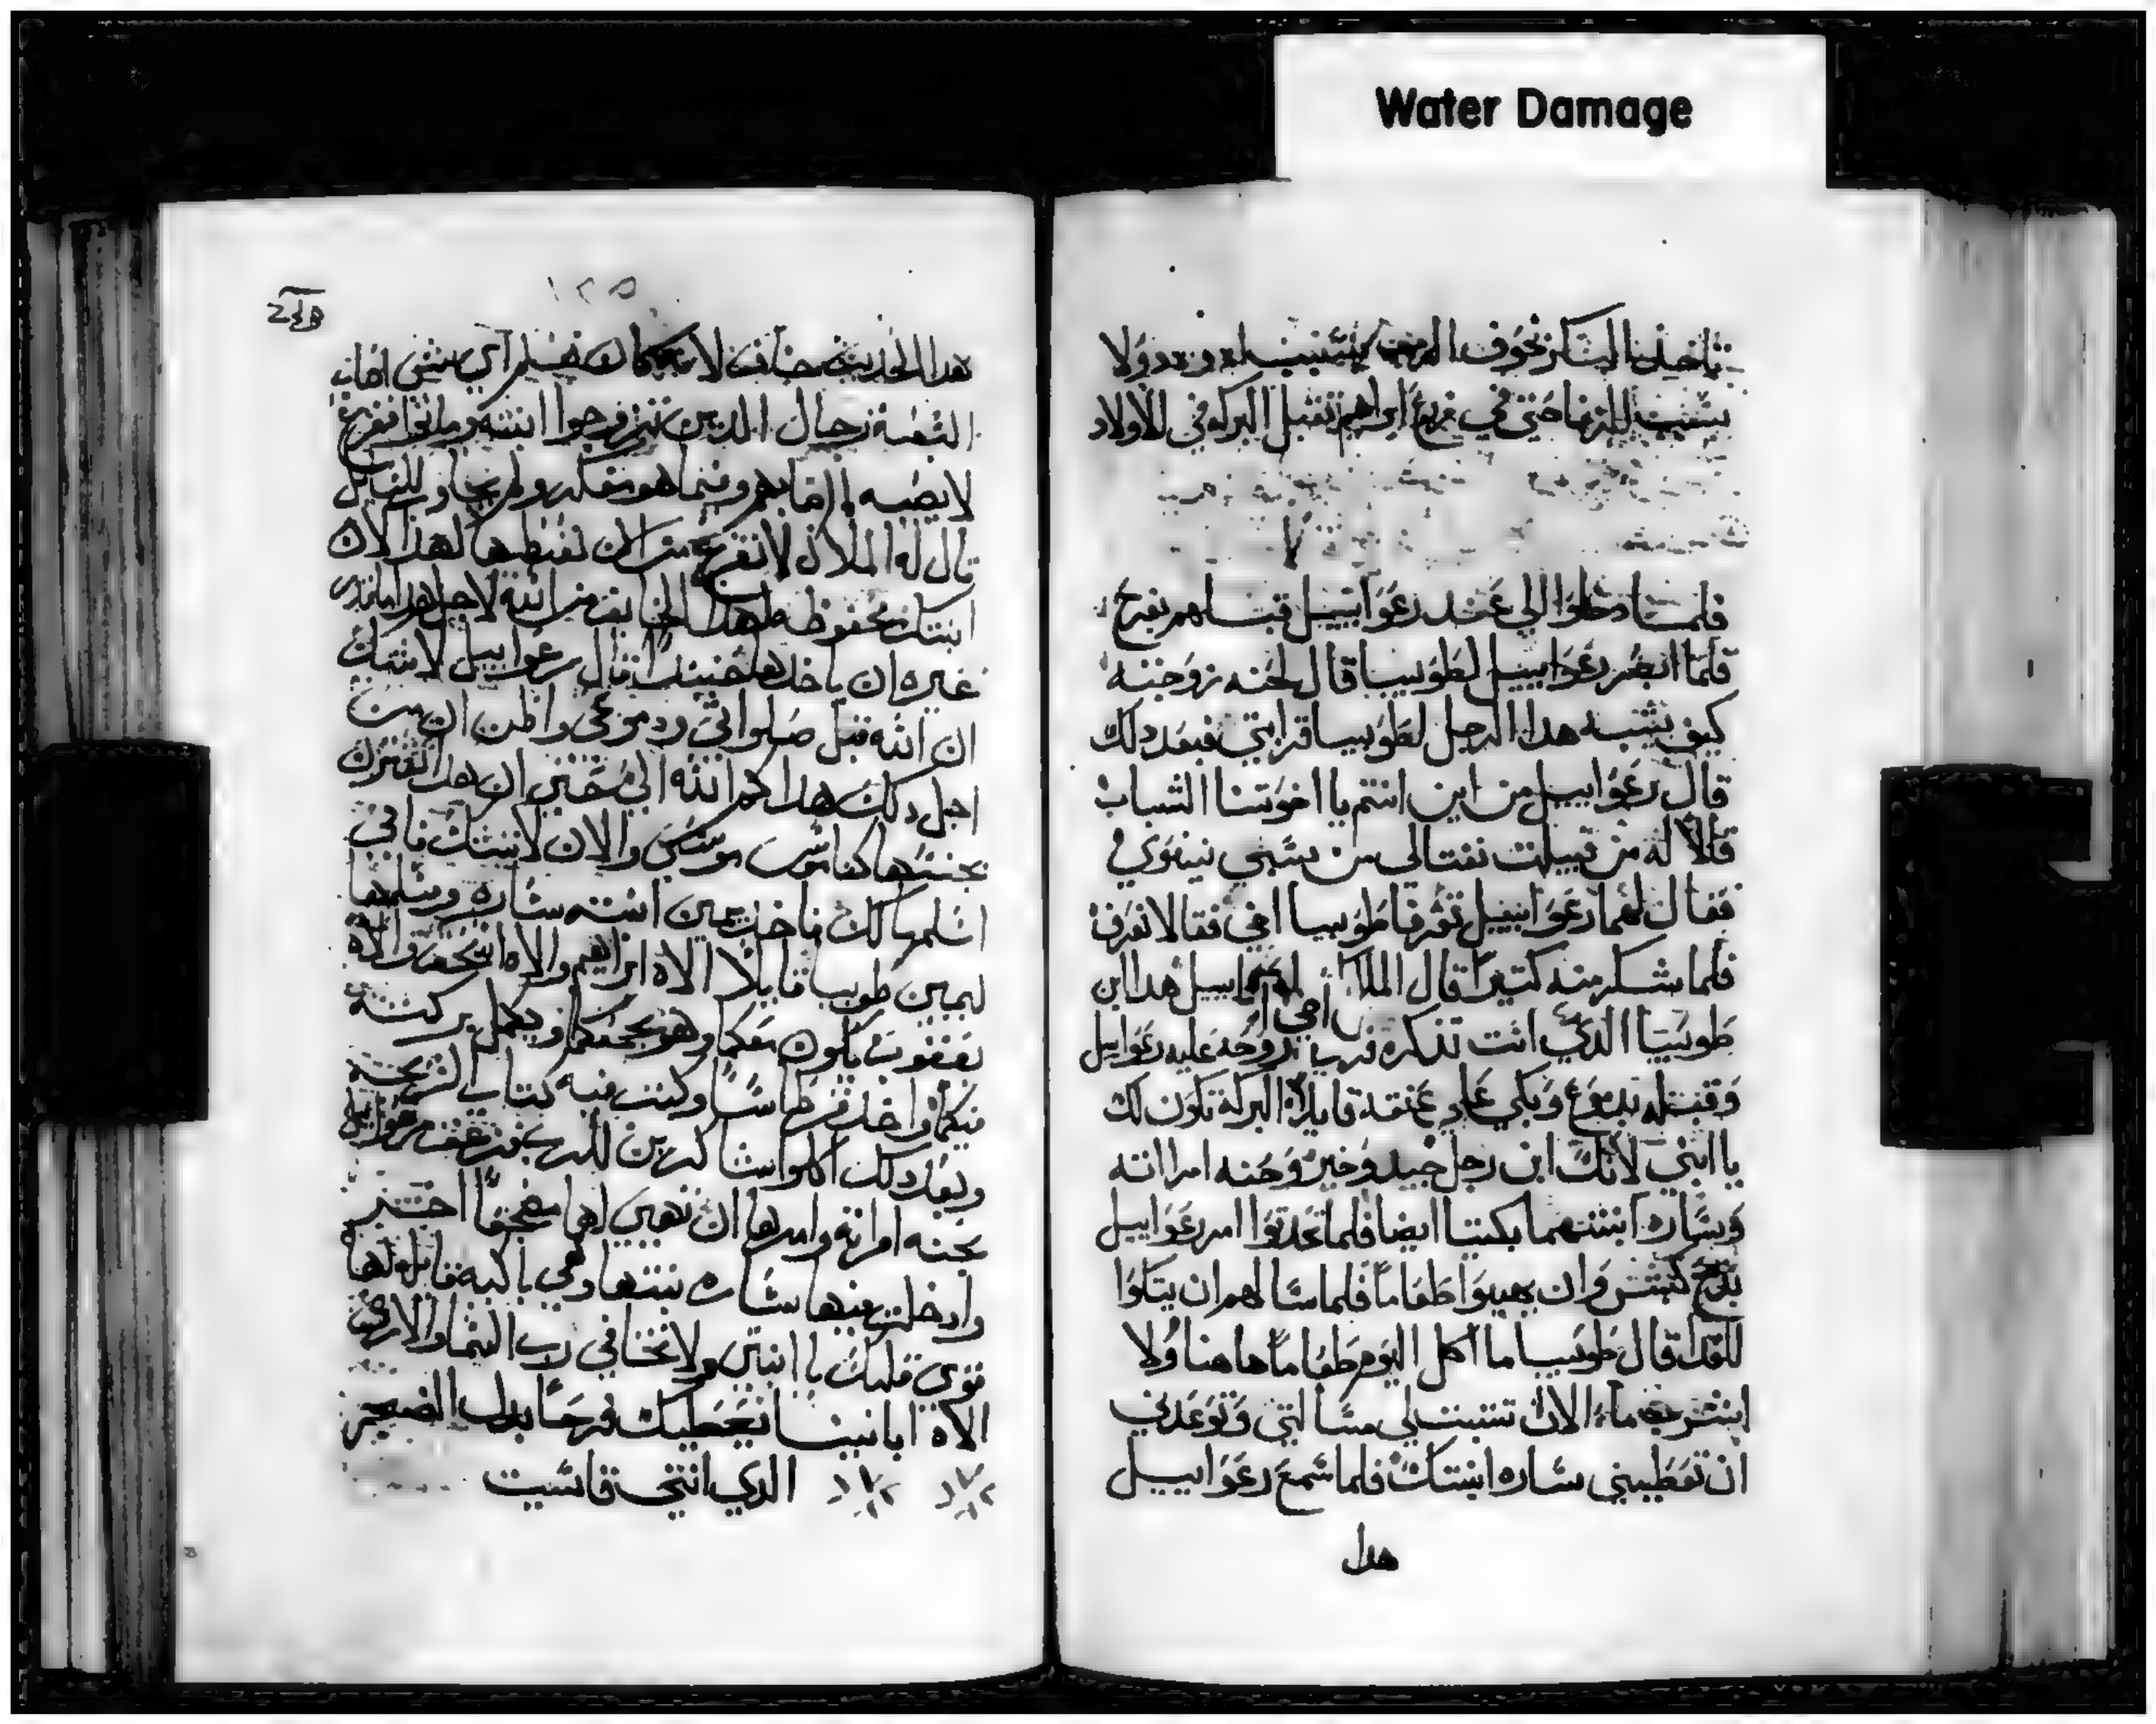 Water Damage
تاخدنا البكر بخوف الرب
حتي في زرع ابراهيم تقبل البركه في الاولاد
فلما دخلوا الي عند رعوابييل قبلهم بفرح
فلما ابصر رعوابييل لطوبيا قال لحنه زوجته
كيف يشبه هدا الرجل لطوبيا قرابتي فبعد دلك
قال رعوابيل من اين انتم يا اخوتنا الشباب
قالا له من قبيلت نفتالي من سبي نينوي
فقال لهما رعوابييل تعرفا طوبيا اخي فقالا نعرف
فلما شكر منه كتيرا قال الملاك لرعوابييل هدا ابن
طوبيا الدي انت تذكره رعوابيل
وقبله بدموع وبكي علي عنقه قايلا البركه تكون لك
يا ابني لانك ابن رجل جيد وخير وحنه امراته
وساره ابنتهما بكيتا ايضا فلما تحدتوا امر رعوابيل
بدبح كبش وان يهيوا طعاما فلما سالهم ان يتكوا
للغدا قال طوبيا ما اكل اليوم طعاما هاهنا ولا
اشرب ماء الان تتبت لي مسالتي وتوعدني
ان تعطيني ساره ابنتك فلما سمع رعوابييل
هدا
١٢٥
هدا الحديث خاف لانه كان اي شي اصاب
السبعة رجال الدين تزوجوا ابنته وماتوا ففزع
لايصبه وفيما هو يفكر ولم يجاوب للسايل
قال له الملاك لا تفزع من ان تعطيها لهذا لان
ابنتك محفوظه لهدا الخايف من الله لاجل هدا ما قدر
غيره ان ياخدها حينيد قال رعوابيل لاشك
ان الله قبل صلواتي ودموعي واظن ان من
اجل دلك هداكم الله الي حتي ان هدا تقترن
بجنسها كناموس موسي والان لا تشك فاني
اسلمها لك فاخد يمين ابنته ساره وسلمها
ليمين طوبيا قايلا الاه ابراهيم والاه اسحق والاه
يعقوب يكون معكما وهو يجمعكما ويكمل بركته
فيكما واخد قرطاسا وكتب فيه كتاب الزيجه
وبعد دلك اكلوا شاكرين للرب
بحنه امراته وامرها ان تهيي لها مضجعا اخر
وادخلت فيها ساره بنتها وهي باكيه قايله لها
قوي قلبك يا ابنتي ولا تخافي رب السما والارض
الاه اباينا يعطيك فرحا بدل الضجر
الدي انتي قاسيت